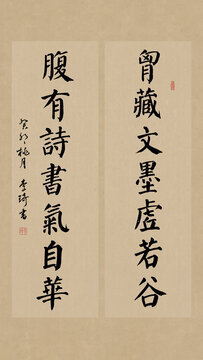 胷藏文墨虛若谷
腹有詩書氣自華
癸卯桃月 李琦書